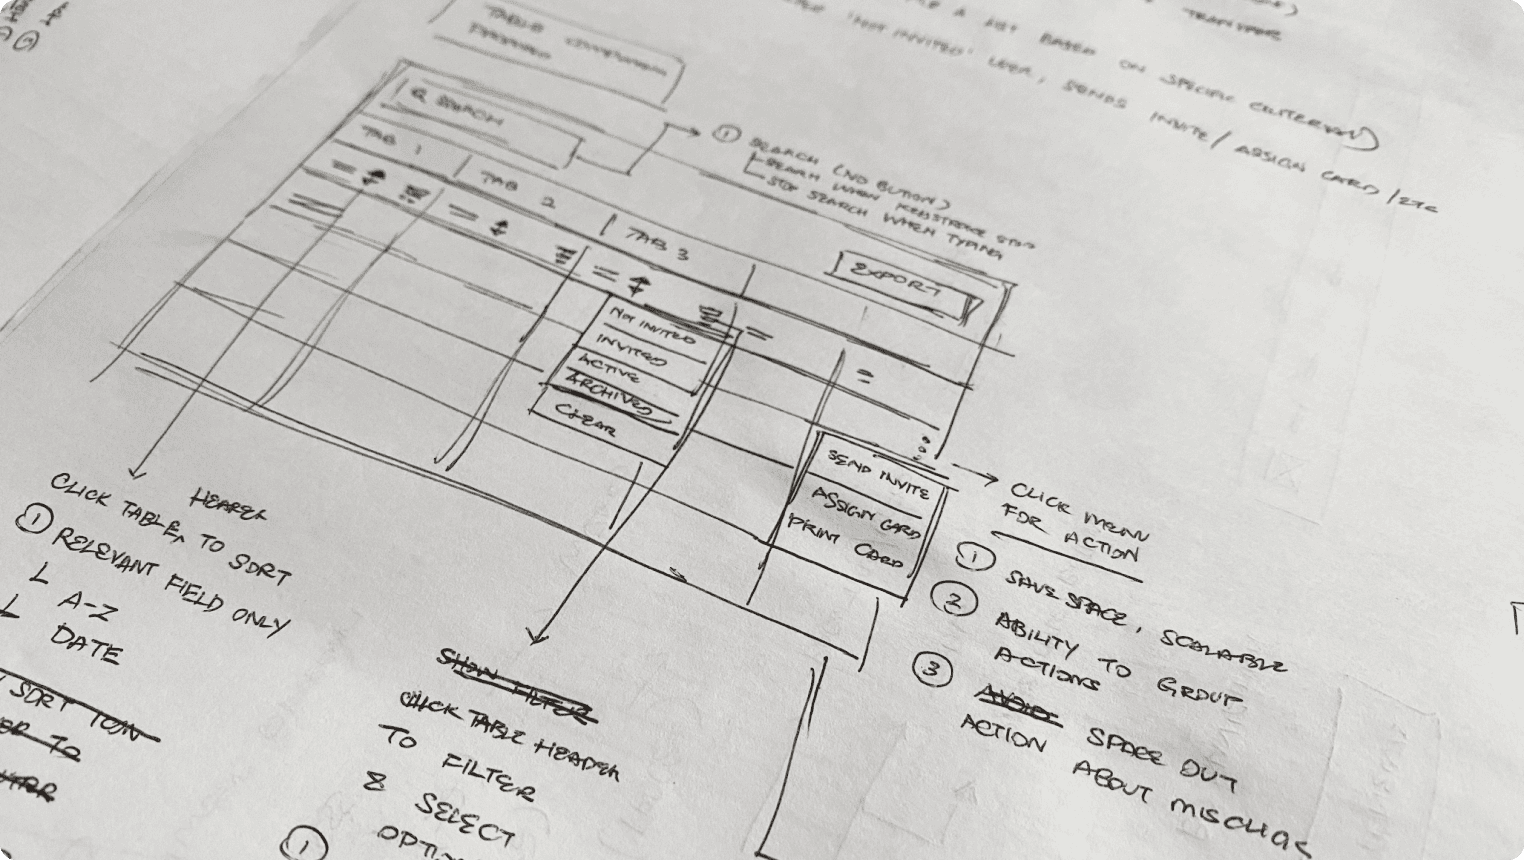 TABLE COMPONENT
A LIST BASED ON SPECIFIC CRITERION)
TRANSFER
'NOT INVITED' USER, SENDS INVITE / ASSIGN CARD / ETC
SEARCH
① SEARCH (NO BUTTON)
SEARCH WHEN KEYSTROKE STOP
STOP SEARCH WHEN TYPING
TAB 1
TAB 2
TAB 3
EXPORT
NOT INVITED
INVITED
ACTIVE
ARCHIVED
CLEAR
SEND INVITE
ASSIGN CARD
PRINT CARD
CLICK MENU
FOR ACTION
① SAVE SPACE, SCALABLE
② ABILITY TO GROUP
ACTIONS
③ SPACE OUT
ACTION ABOUT MISCLIC
HEADER
CLICK TABLE, TO SORT
① RELEVANT FIELD ONLY
A-Z
DATE
SORT ICON
TO
SHOW FILTER
CLICK TABLE HEADER
TO FILTER
& SELECT
①